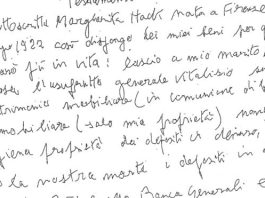 Testamento
sottoscritta Margherita Hack nata a Firenze
1922 così dispongo dei miei beni per q
più in vita: lascio a mio marito,
l'usufrutto generale vitalizio
immobiliare (in comunione di b
mobiliare (solo mia proprietà) nonché
piena proprietà dei depositi di denaro,
la nostra morte i depositi in
Banca Generali e